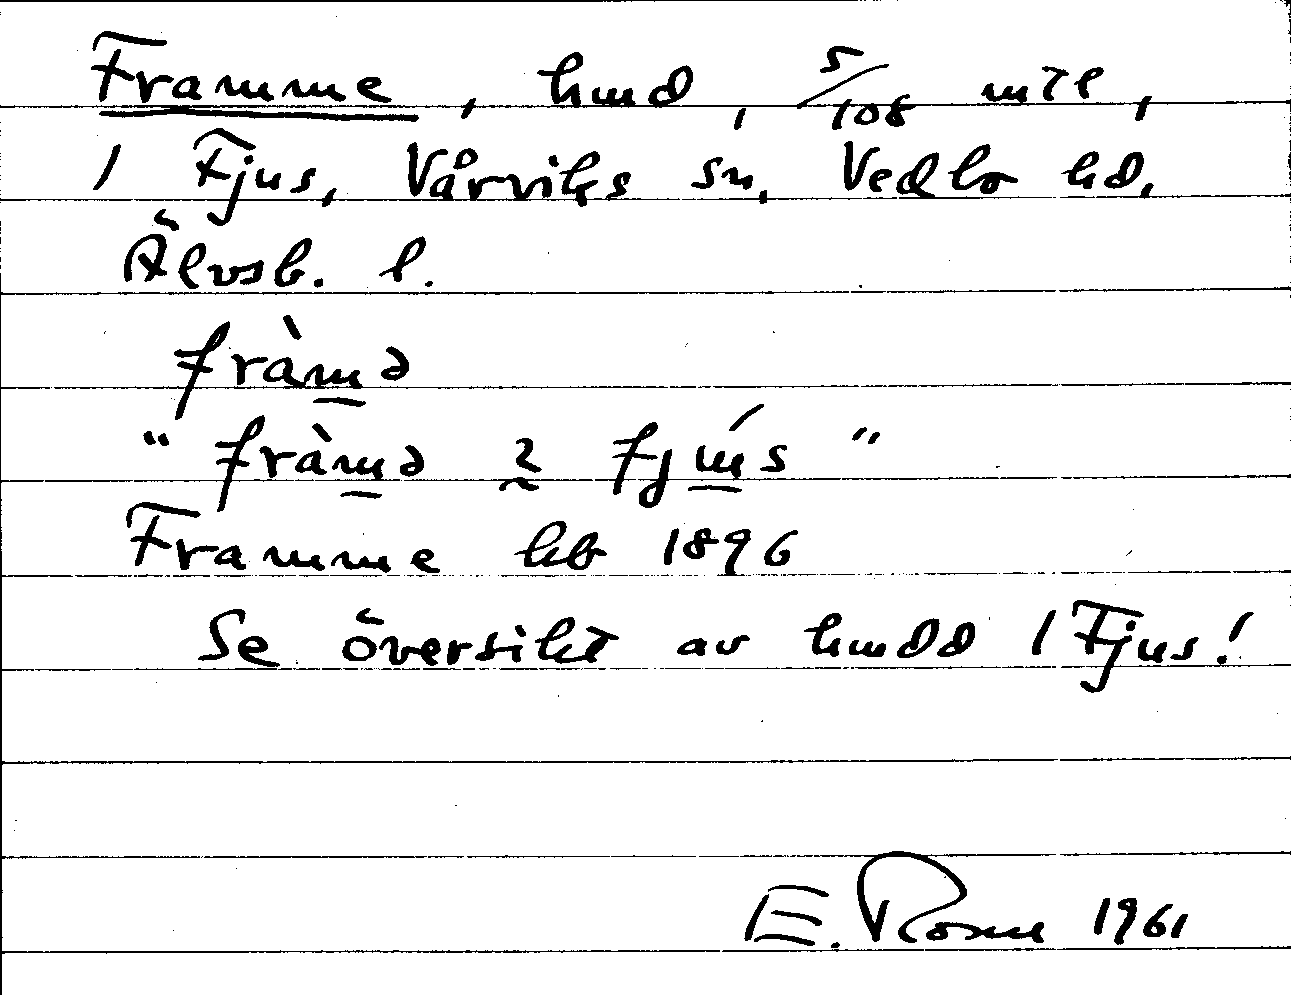 Framme, hmd, 5/108 mtl,
i Fjus, Vårviks sn, Vedbo hd,
Älvsb. l.
fràmə
"fràmə 2 fjús"
Framme hb 1896
Se översikt av hmdd i Fjus!
E. 1961